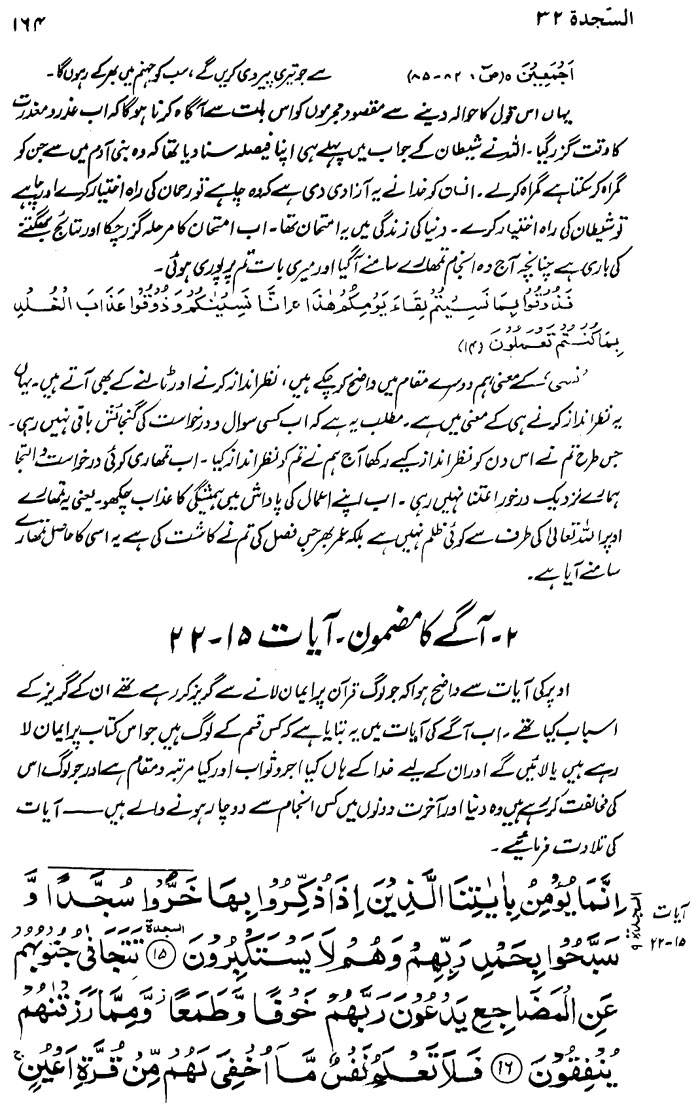 السّجدة ٣٢
۱۶۴
اَجْمَعِیْنَ ٥ (صٓ ؛ ٨٢ - ٨٥) سے جو تیری پیروی کریں گے، سب کو جہنم میں بھر کے رہوں گا۔
یہاں اس قول کا حوالہ دینے سے مقصود مجرموں کو اس بات سے آگاہ کرنا ہوگا کہ اب عذر و معذرت
کا وقت گزر گیا۔ اللہ نے شیطان کے جواب میں پہلے ہی اپنا فیصلہ سنا دیا تھا کہ وہ بنی آدم میں سے جن کو
گمراہ کر سکتا ہے گمراہ کر لے۔ انسان کو خدا نے یہ آزادی دی ہے کہ وہ چاہے تو رحمان کی راہ اختیار کرے اور چاہے
تو شیطان کی راہ اختیار کرے۔ دنیا کی زندگی میں یہ امتحان تھا۔ اب امتحان کا مرحلہ گزر چکا اور نتائج بھگتنے
کی باری ہے چنانچہ آج وہ انجام تمھارے سامنے آ گیا اور میری بات تم پر پوری ہوئی۔
فَذُوْقُوْا بِمَا نَسِیْتُمْ لِقَآءَ یَوْمِکُمْ ھٰذَا ۚ اِنَّا نَسِیْنٰکُمْ وَذُوْقُوْا عَذَابَ الْخُلْدِ
بِمَا کُنْتُمْ تَعْمَلُوْنَ (۱۴)
'نسی' کے معنی ہم دوسرے مقام میں واضح کر چکے ہیں، نظر انداز کرنے اور ٹالنے کے بھی آتے ہیں۔ یہاں
یہ نظر انداز کرنے ہی کے معنی میں ہے۔ مطلب یہ ہے کہ اب کسی سوال و درخواست کی گنجائش باقی نہیں رہی۔
جس طرح تم نے اس دن کو نظر انداز کیے رکھا آج ہم نے تم کو نظر انداز کیا۔ اب تمھاری کوئی درخواست و التجا
ہمارے نزدیک درخور اعتنا نہیں رہی۔ اب اپنے اعمال کی پاداش میں ہمیشگی کا عذاب چکھو۔ یعنی یہ تمھارے
اوپر اللہ تعالیٰ کی طرف سے کوئی ظلم نہیں ہے بلکہ عمر بھر جس فصل کی تم نے کاشت کی ہے یہ اسی کا حاصل تمھارے
سامنے آیا ہے۔
۲- آگے کا مضمون۔ آیات ۱۵-۲۲
اوپر کی آیات سے واضح ہوا کہ جو لوگ قرآن پر ایمان لانے سے گریز کر رہے تھے ان کے گریز کے
اسباب کیا تھے۔ اب آگے کی آیات میں یہ بتایا ہے کہ کس قسم کے لوگ ہیں جو اس کتاب پر ایمان لا
رہے ہیں یا لائیں گے اور ان کے لیے خدا کے ہاں کیا اجر و ثواب اور کیا مرتبہ و مقام ہے اور جو لوگ اس
کی مخالفت کر رہے ہیں وہ دنیا اور آخرت دونوں میں کس انجام سے دوچار ہونے والے ہیں —— آیات
کی تلاوت فرمائیے۔
آیات
۱۵-۲۲
السجدة ٩
اِنَّمَا یُؤْمِنُ بِاٰیٰتِنَا الَّذِیْنَ اِذَا ذُکِّرُوْا بِھَا خَرُّوْا سُجَّدًا وَّ
سَبَّحُوْا بِحَمْدِ رَبِّھِمْ وَھُمْ لَا یَسْتَکْبِرُوْنَ ۱۵ السجدة تَتَجَافٰی جُنُوْبُھُمْ
عَنِ الْمَضَاجِعِ یَدْعُوْنَ رَبَّھُمْ خَوْفًا وَّطَمَعًا ز وَّمِمَّا رَزَقْنٰھُمْ
یُنْفِقُوْنَ ۱۶ فَلَا تَعْلَمُ نَفْسٌ مَّآ اُخْفِیَ لَھُمْ مِّنْ قُرَّةِ اَعْیُنٍ ج